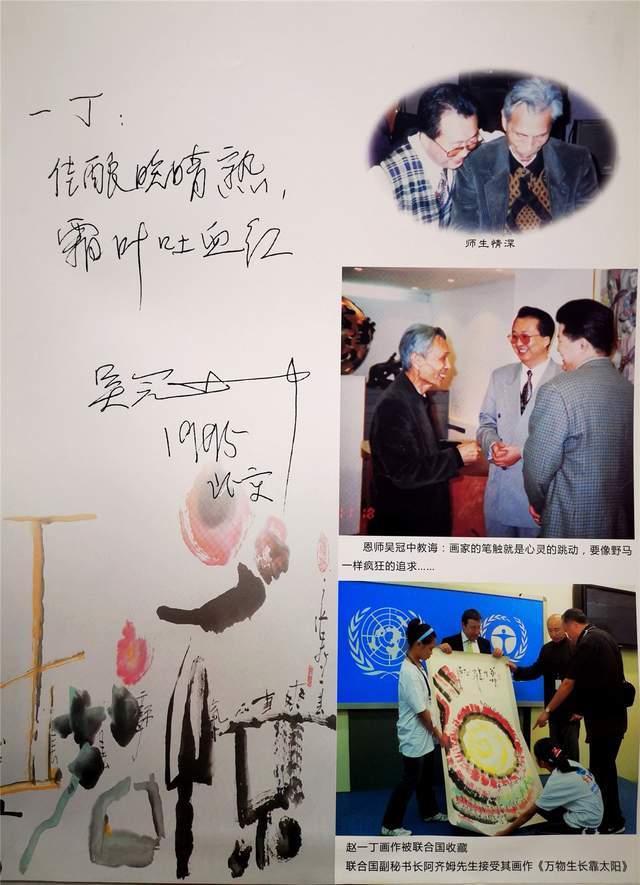 一丁：
佳酿晚晴熟，
霜叶吐血红
吴冠中
1995
北京
师生情深
恩师吴冠中教诲：画家的笔触就是心灵的跳动，要像野马
一样疯狂的追求……
赵一丁画作被联合国收藏
联合国副秘书长阿齐姆先生接受其画作《万物生长靠太阳》